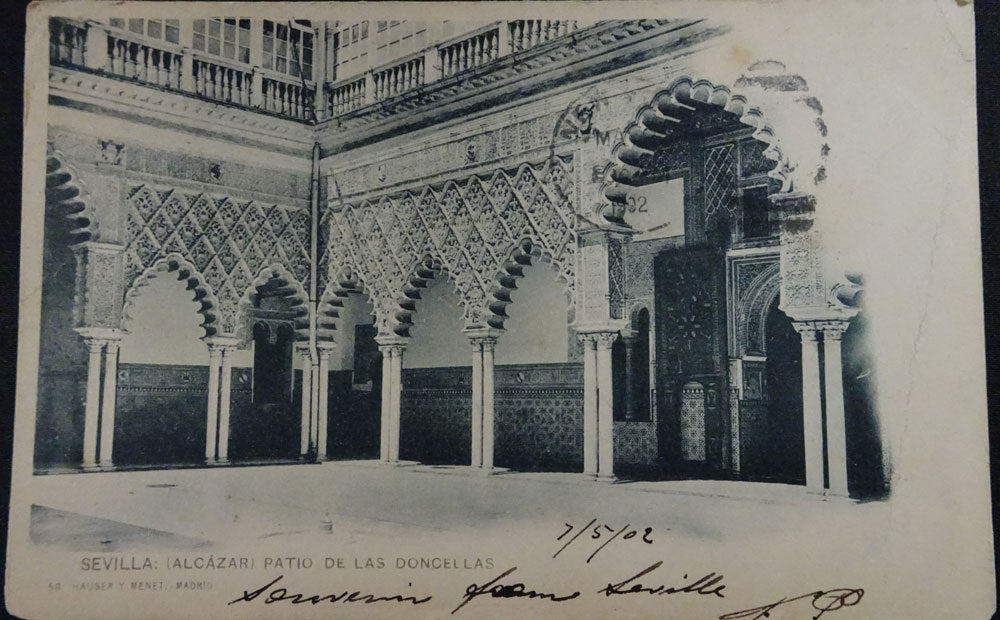 MA
1902
7/5/02
SEVILLA: (ALCÁZAR) PATIO DE LAS DONCELLAS
58 HAUSER Y MENET.-MADRID
Souvenir from Seville